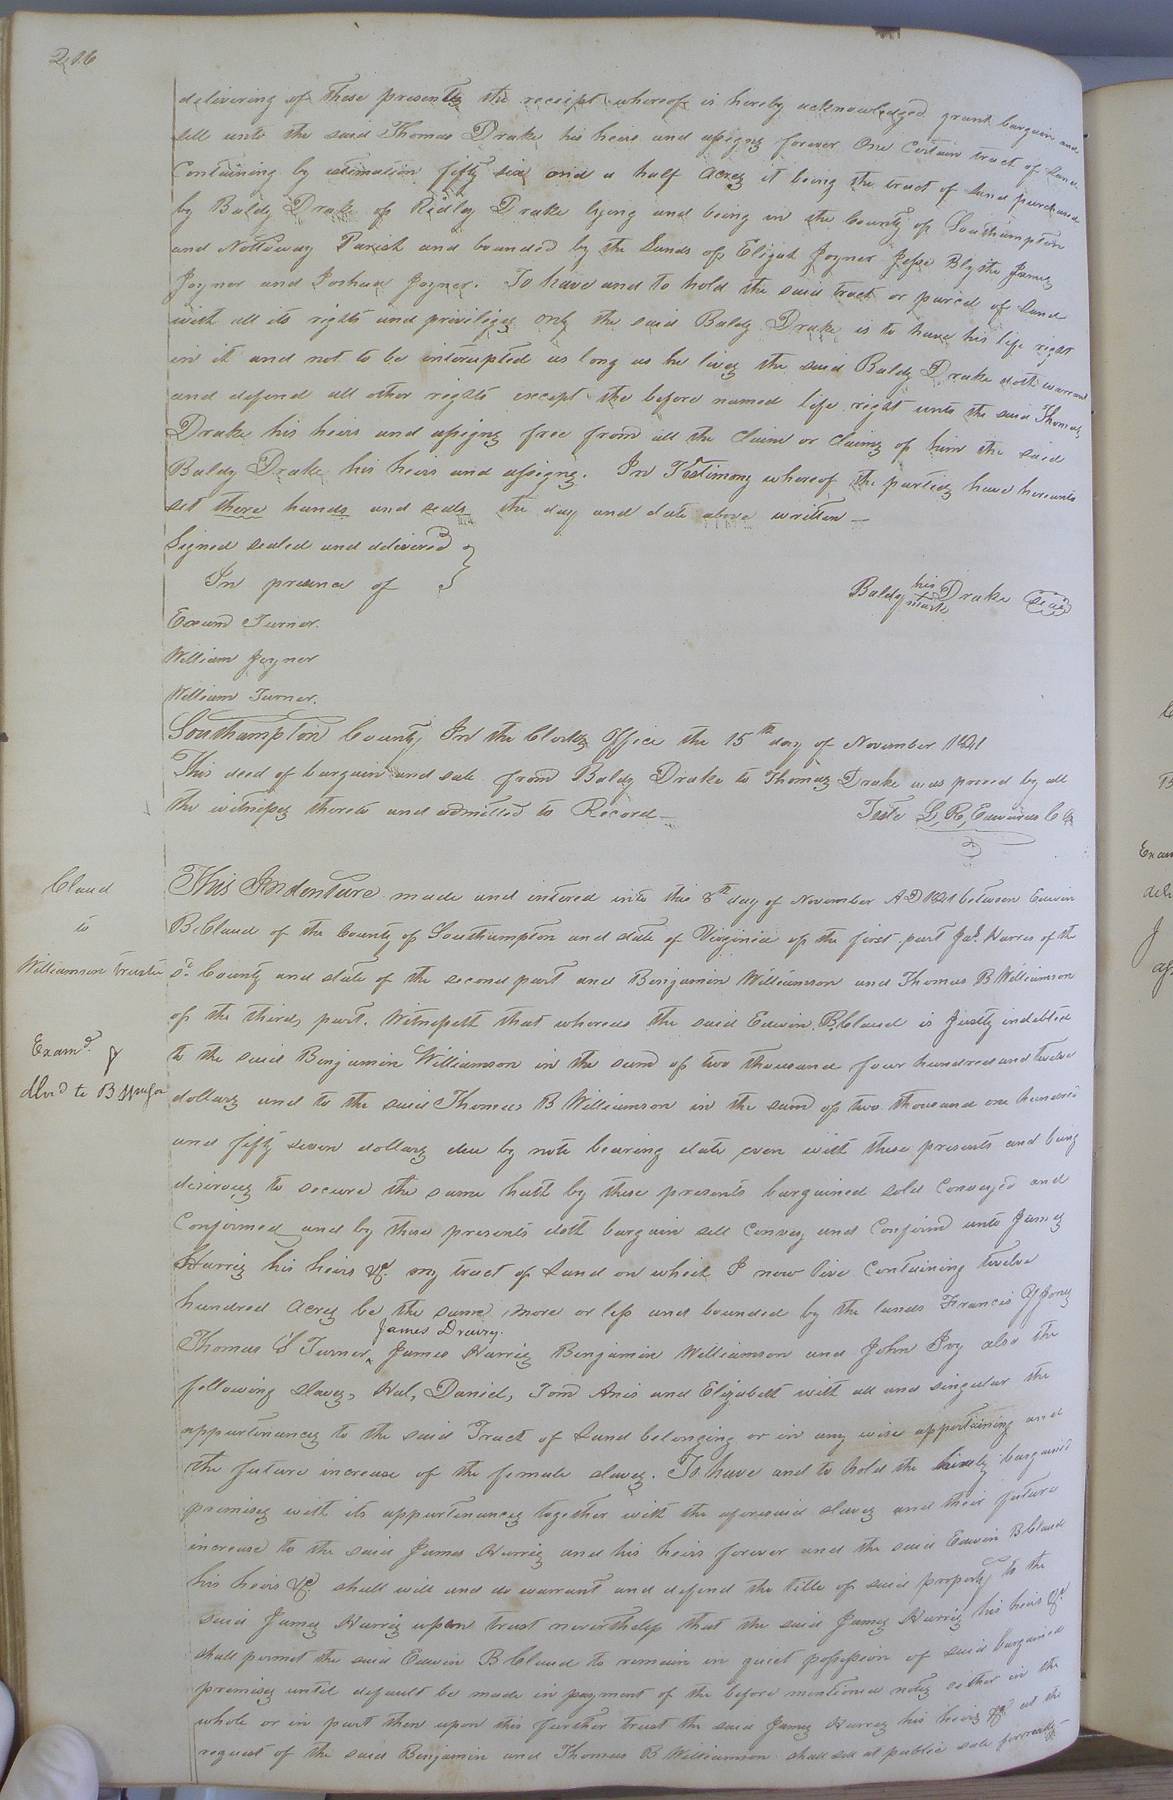 206
delivering of these presents the receipt whereof is hereby acknowledged grant bargain and
sell unto the said Thomas Drake his heirs and assigns forever One Certain tract of Land
Containing by estimation fifty six and a half Acres it being the tract of Land purchased
by Baldy Drake of Ridley Drake lying and being in the County of Southampton
and Nottoway Parish and bounded by the Lands of Elijah Joyner Jesse Blythe James
Joyner and Joshua Joyner. To have and to hold the said tract or parcel of Land
with all its rights and priviliges only the said Baldy Drake is to have his life right
in it and not to be interupted as long as he lives the said Baldy Drake doth warrant
and defend all other rights except the before named life right unto the said Thomas
Drake his heirs and assigns free from all the Claim or Claims of him the said
Baldy Drake his heirs and assigns. In Testimony whereof the parties have hereunto
set there hands and seals the day and date above written
Signed sealed and delivered
In presence of
Baldy his mark Drake Seal
Exum Turner.
William Joyner
William Turner.
Southampton County In the Clerks Office the 15th day of November 1841
This deed of bargain and sale from Baldy Drake to Thomas Drake was proved by all
the witnesses thereto and admitted to Record
Teste L, R, Edwards C
Claud
to
Williamson trustee
Examd. &
dlvd to B
This Indenture made and intered into this 8th day of November AD 1841 between Edwin
B Claud of the County of Southampton and state of Virginia of the first part Jas. Harris of the
sd. County and state of the second part and Benjamin Williamson and Thomas B Williamson
of the third, part. Witnesseth that whereas the said Edwin. B. Claud is Justly indebted
to the said Benjamin Williamson in the sum of two thousand four hundred and twelve
dollars and to the said Thomas B Williamson in the sum of two thousand one hundred
and fifty seven dollars due by note bearing date even with these presents and being
desirous to secure the same hath by these presents bargained sold Conveyed and
Confirmed and by these presents doth bargain sell Convey and Confirm unto James
Harris his heirs &c. my tract of Land on which I now live Containing twelve
hundred Acres be the same more or less and bounded by the lands Francis
James Drewry.
Thomas Turner, James Harris Benjamin Williamson and John Ivy also the
following slaves, Hal, Daniel, Tom Anis and Elizabeth with all and singular the
appurtenances to the said Tract of Land belonging or in any wise appertaining and
the future increase of the female slaves. To have and to hold the hereby bargained
premises with its appurtenances together with the aforesaid slaves and their future
increase to the said James Harris and his heirs forever and the said Edwin B Claud
his heirs &c shall will and do warrant and defend the title of said property to the
said James Harris upon trust nevertheless that the said James Harris his heirs &c.
shall permit the said Edwin B Claud to remain in quiet possession of said bargained
premises until default be made in payment of the before mentioned notes either in the
whole or in part then upon this further trust the said James Harris his heirs &c at the
request of the said Benjamin and Thomas B Williamson shall sell at public sale